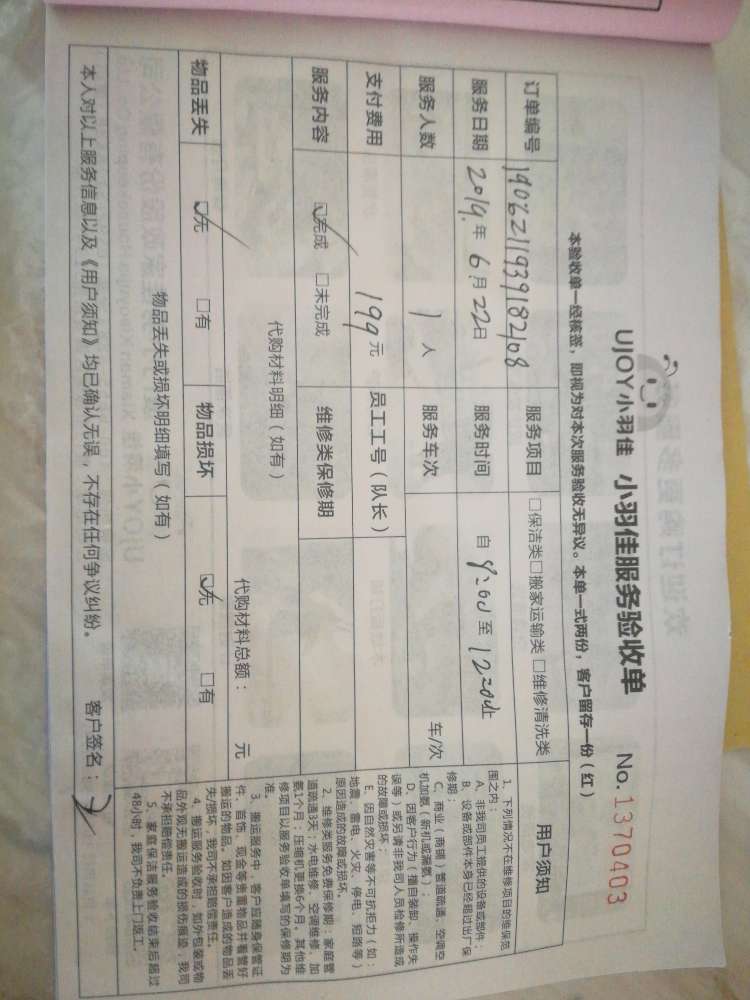 UJOY小羽佳 小羽佳服务验收单 No. 1370403
本验收单一经核签，即视为对本次服务验收无异议。本单一式两份，客户留存一份（红）
订单编号 1906211939182108 服务项目 □保洁类□搬家运输类□维修清洗类
服务日期 2019年 6月22日 服务时间 自 9:00至 12:00止
服务人数 1人 服务车次 车/次
支付费用 199元 员工工号（队长）
服务内容 ☑完成 □未完成 维修类保修期
代购材料明细（如有）
代购材料总额： 元
物品丢失 ☑无 □有 物品损坏 ☑无 □有
物品丢失或损坏明细填写（如有）
本人对以上服务信息以及《用户须知》均已确认无误，不存在任何争议纠纷。 客户签名：
用户须知
1、下列情况不在维修项目的维保范
围之内：
A、非我司员工提供的设备或部件；
B、设备或部件本身已经超过出厂保
修期；
C、商业（商铺）管道疏通、空调空
机加氨（新机或漏氨）；
D、因客户行为（擅自装卸、操作失
误等）或另请非我司人员检修所造成
的故障或损坏；
E、因自然灾害等不可抗拒力（如：
地震、雷电、火灾、停电、短路等）
原因造成的故障或损坏。
2、维修类服务免费保修期：家庭管
道疏通3天；水电维修、空调维修、加
氨1个月；压缩机更换6个月。其他维
修项目以服务验收单填写的保修期为
准。
3、搬运服务中，客户应随身保管证
件、首饰、现金等贵重物品并看管好
搬运的物品。如因客户造成的物品丢
失/损坏，我司不承担赔偿责任。
4、搬运服务验收时，如外包装或物
品外观无搬运造成的损伤痕迹，我司
不承担赔偿责任。
5、家庭保洁服务验收结束后超过
48小时，我司不负责上门返工。